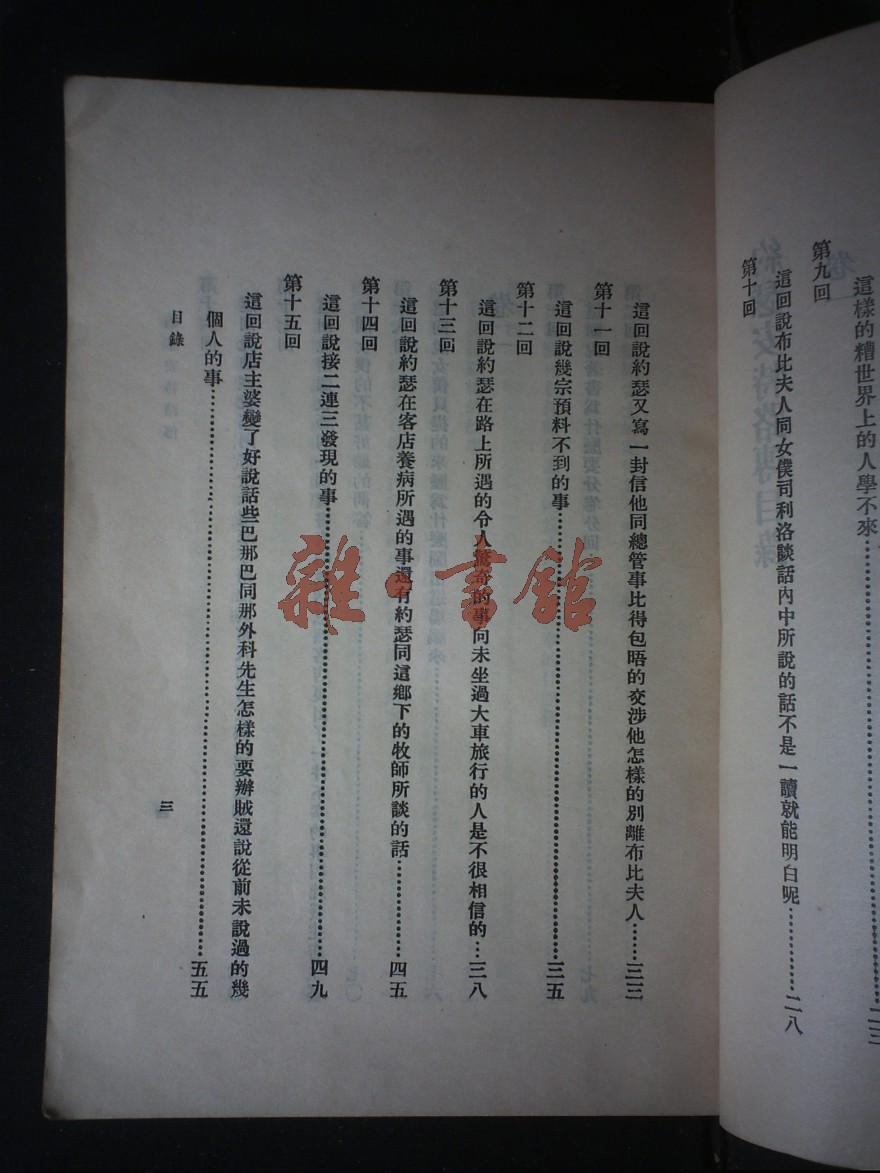 這樣的糟世界上的人學不來……二三
第九回
這回說布比夫人同女僕司利洛談話內中所說的話不是一讀就能明白呢……二八
第十回
這回說約瑟又寫一封信他同總管事比得包晤的交涉他怎樣的別離布比夫人……三三
第十一回
這回說幾宗預料不到的事……三五
第十二回
這回說約瑟在路上所遇的令人驚奇的事向未坐過大車旅行的人是不很相信的…三八
第十三回
這回說約瑟在客店養病所遇的事還有約瑟同這鄉下的牧師所談的話……四五
第十四回
這回說接二連三發現的事……四九
第十五回
這回說店主婆變了好說話些巴那巴同那外科先生怎樣的要辦賊還說從前未說過的幾
個人的事……五五
目錄
三
雜·書館